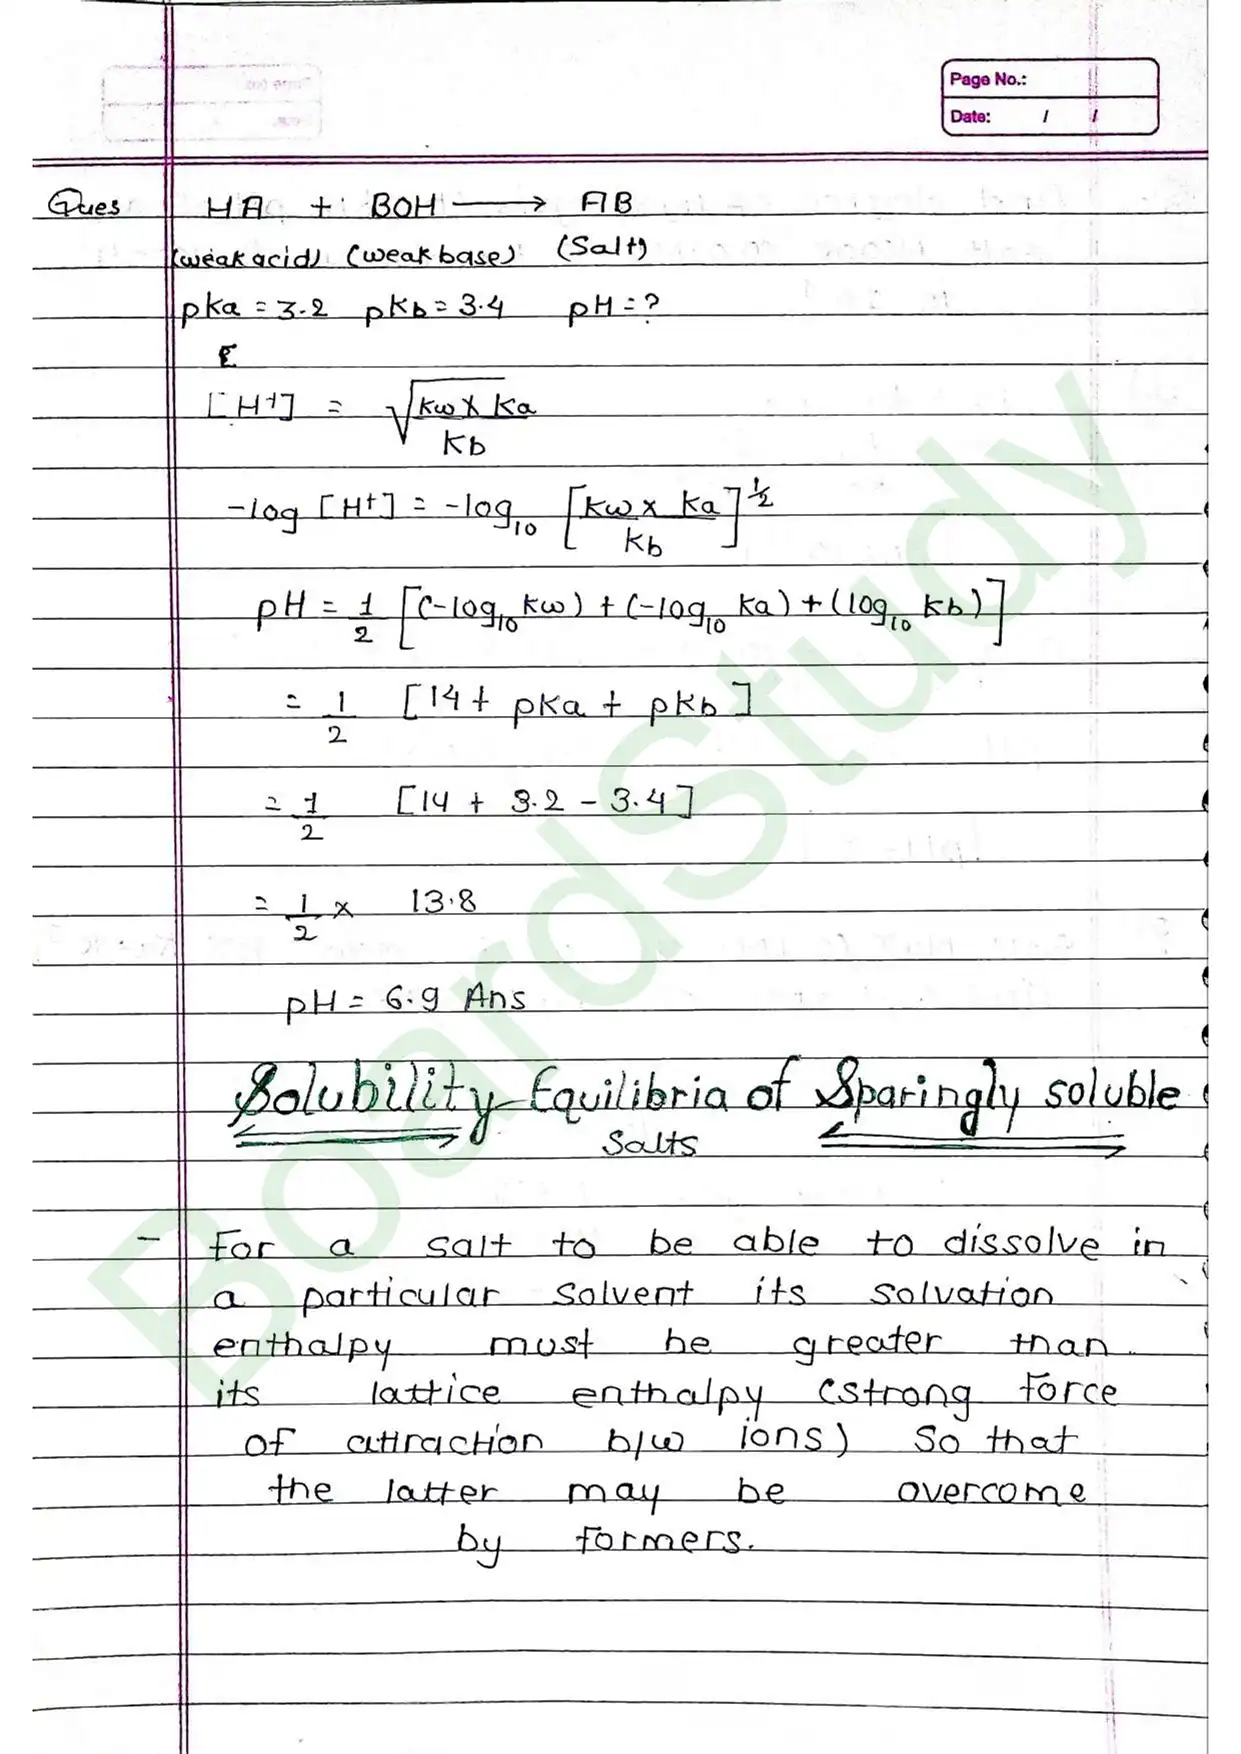 Page No.:
Date: / /
Ques HA + BOH ⟶ AB
(weak acid) (weak base) (Salt)
pka = 3.2 pKb = 3.4 pH = ?
[H+] = √kw x ka / kb
-log [H+] = -log10 [kw x ka / kb]^1/2
pH = 1/2 [(-log10 kw) + (-log10 ka) + (log10 kb)]
= 1/2 [14 + pka + pkb]
= 1/2 [14 + 3.2 - 3.4]
= 1/2 x 13.8
pH = 6.9 Ans
Solubility Equilibria of Sparingly soluble
Salts
- For a salt to be able to dissolve in
a particular solvent its solvation
enthalpy must be greater than
its lattice enthalpy (strong force
of attraction b/w ions) so that
the latter may be overcome
by formers.
BoardStudy